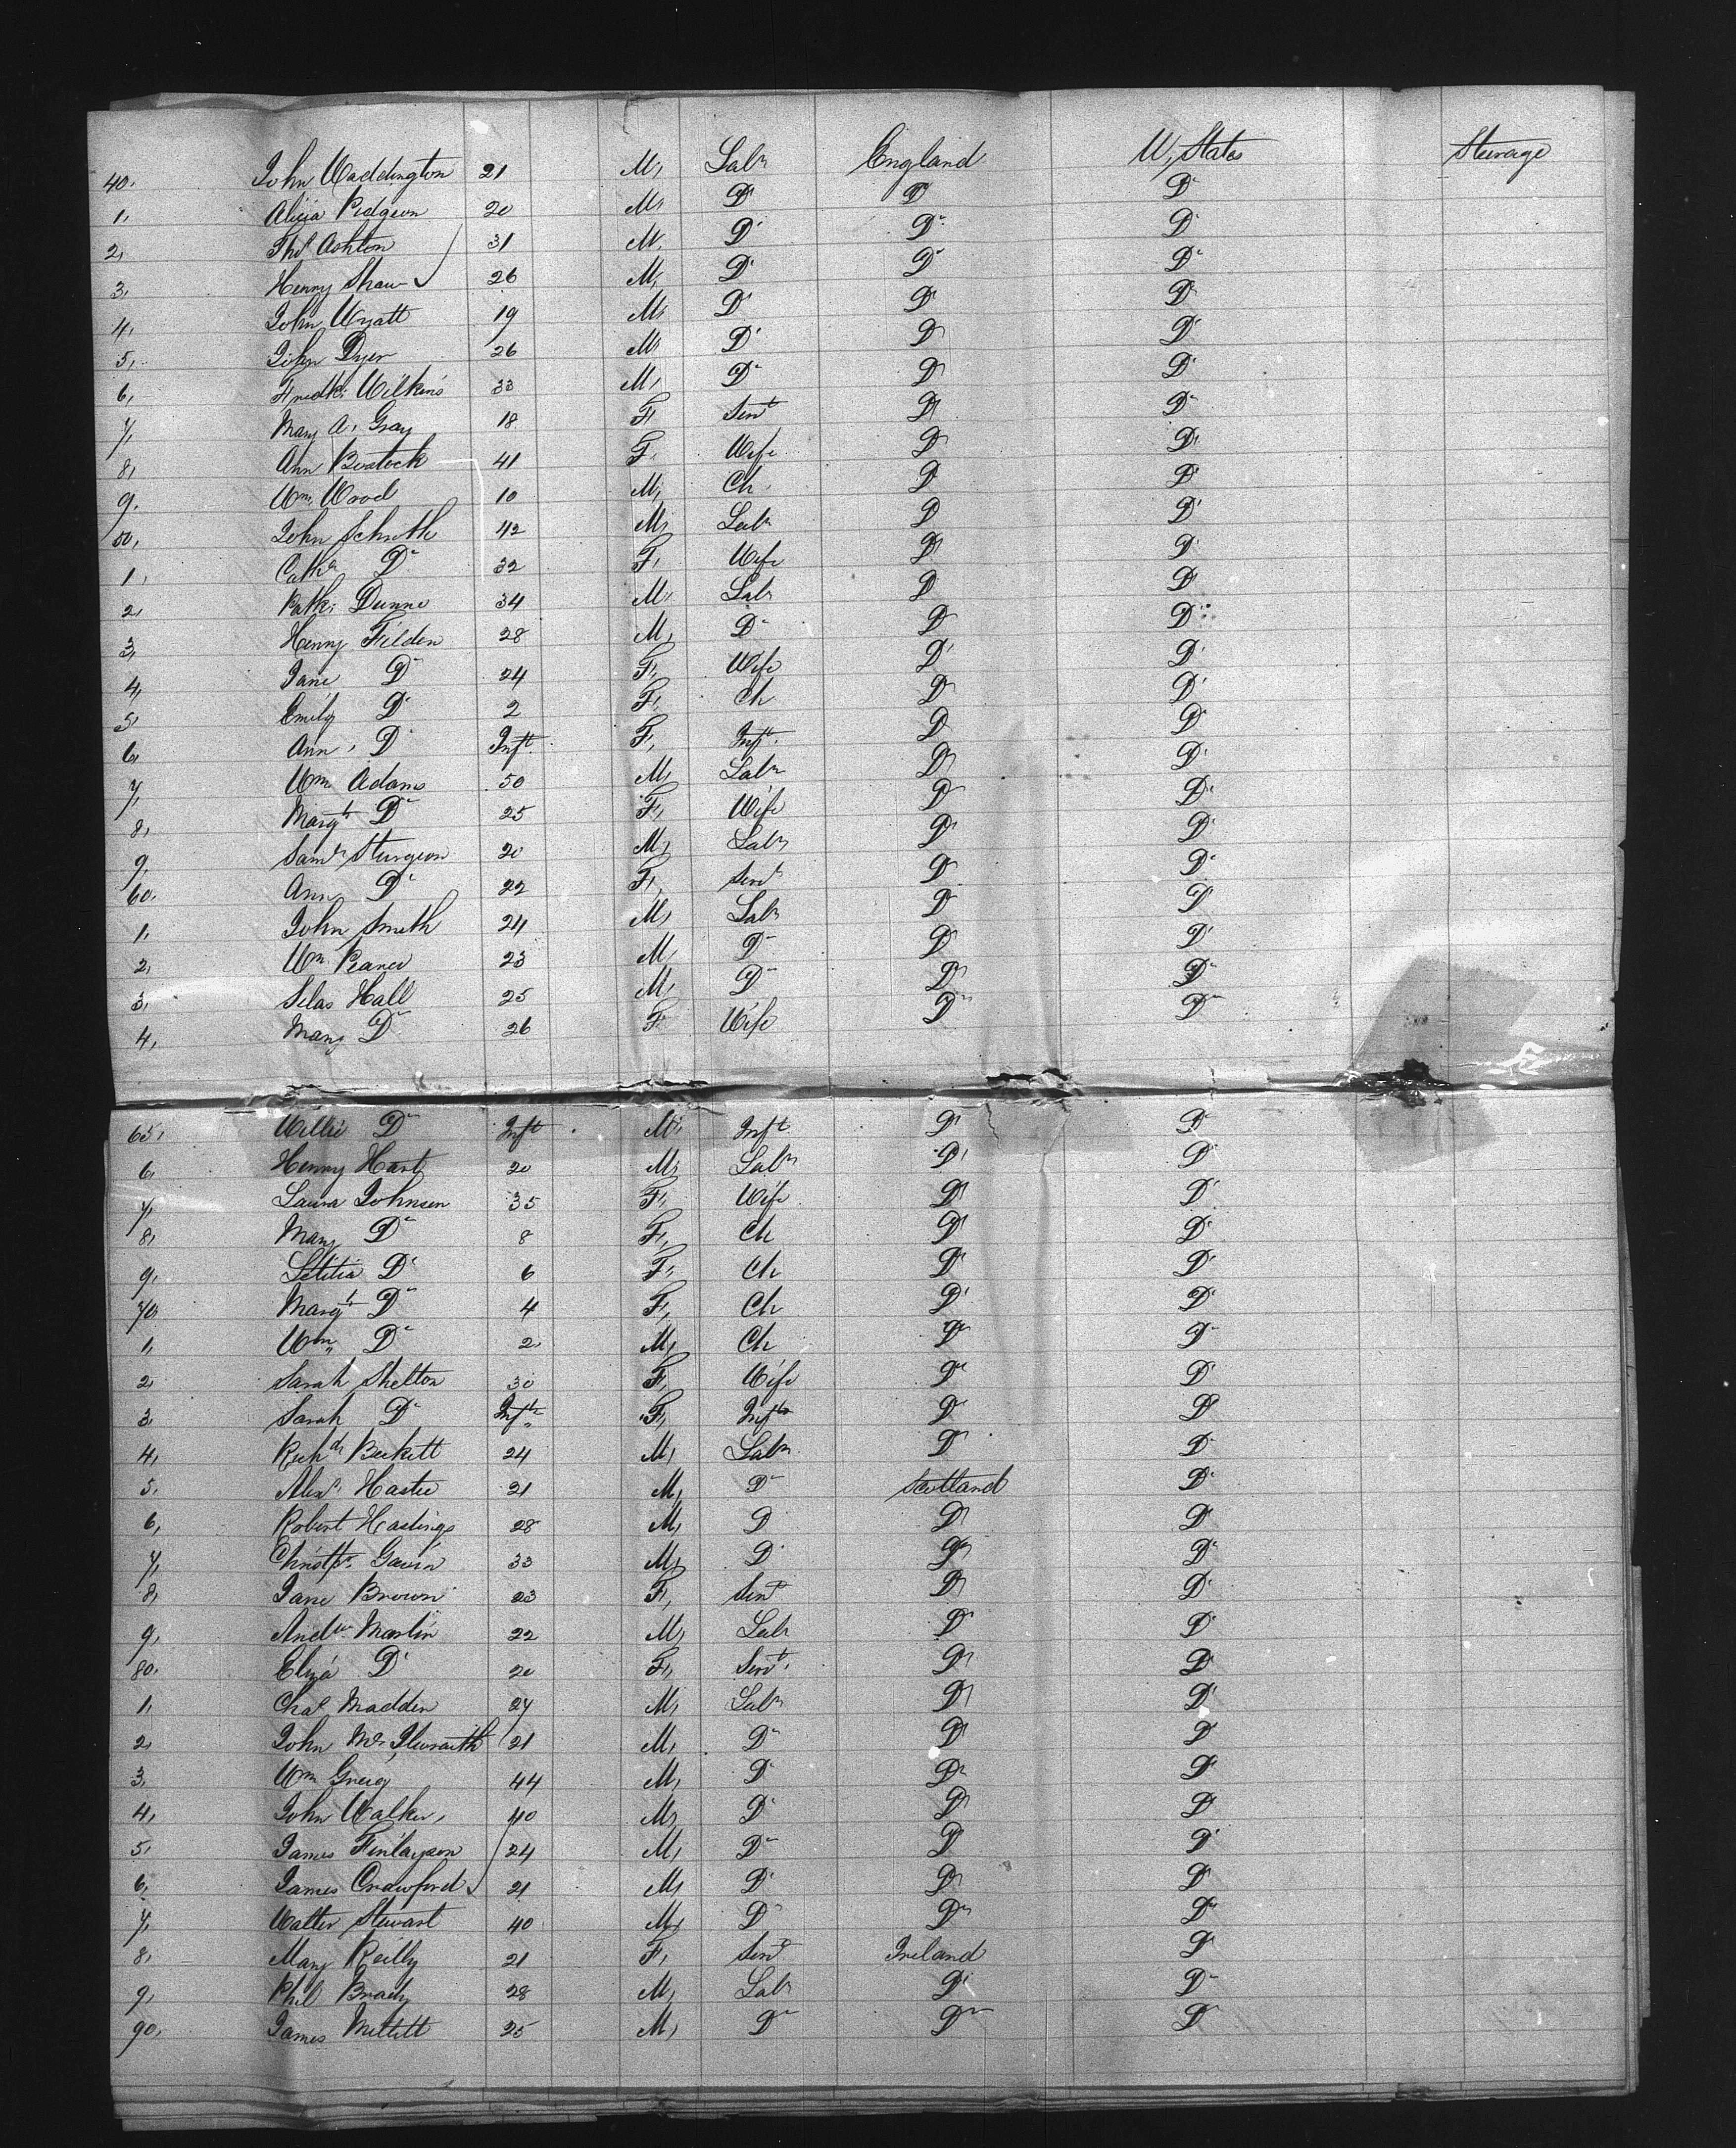 40, John Waddington 21 M, Labr England U, States Steerage
1, Alicia Pidgeon 20 M, Do Do Do
2, Thos Ashton 31 M, Do Do Do
3, Henry Shaw 26 M, Do Do Do
4, John Wyatt 19 M, Do Do Do
5, John Dyer 26 M, Do Do Do
6, Fredk: Wilkins 33 M, Do Do Do
7, Mary A, Gray 18 F, Servt Do Do
8, Ann Bostock 41 F, Wife Do Do
9, Wm Wood 10 M, Ch Do Do
50, John Schroth 42 M, Labr Do Do
1, Cathe Do 32 F, Wife Do Do
2, Patk: Dunne 34 M, Labr Do Do
3, Henry Filden 28 M, Do Do Do
4, Jane Do 24 F, Wife Do Do
5, Emily Do 2 F, Ch Do Do
6, Ann, Do Inft F, Inft Do Do
7, Wm Adams 50 M, Labr Do Do
8, Margt Do 25 F, Wife Do Do
9, Saml Sturgeon 20 M, Labr Do Do
60, Ann Do 22 F, Servt Do Do
1, John Smith 24 M, Labr Do Do
2, Wm Pearce 23 M, Do Do Do
3, Silas Hall 25 M, Do Do Do
4, Mary Do 26 F, Wife Do Do
65, Willie Do Inft M, Inft Do Do
6, Henry Hart 20 M, Labr Do Do
7, Laura Johnson 35 F, Wife Do Do
8, Mary Do 8 F, Ch Do Do
9, Letitia Do 6 F, Ch Do Do
70 Margt Do 4 F, Ch Do Do
1, Wm Do 2 M, Ch Do Do
2, Sarah Shelton 30 F, Wife Do Do
3, Sarah Do Inft F, Inft Do Do
4, Richd Beckett 24 M, Labr Do Do
5, Alexr Hastie 21 M, Do Scotland Do
6, Robert Hastings 28 M, Do Do Do
7, Christpr Gavin 33 M, Do Do Do
8, Jane Brown 23 F, Servt Do Do
9, Andw Martin 22 M, Labr Do Do
80, Eliza Do 20 F, Servt Do Do
1, Chas Madden 27 M, Labr Do Do
2, John McIlwraith 21 M, Do Do Do
3, Wm Greig 44 M, Do Do Do
4, John Walker, 40 M, Do Do Do
5, James Finlayson 24 M, Do Do Do
6, James Crawford 21 M, Do Do Do
7, Walter Stewart 40 M, Do Do Do
8, Mary Reilly 21 F, Servt Ireland Do
9, Phil Brady 28 M, Labr Do Do
90, James 25 M, Do Do Do